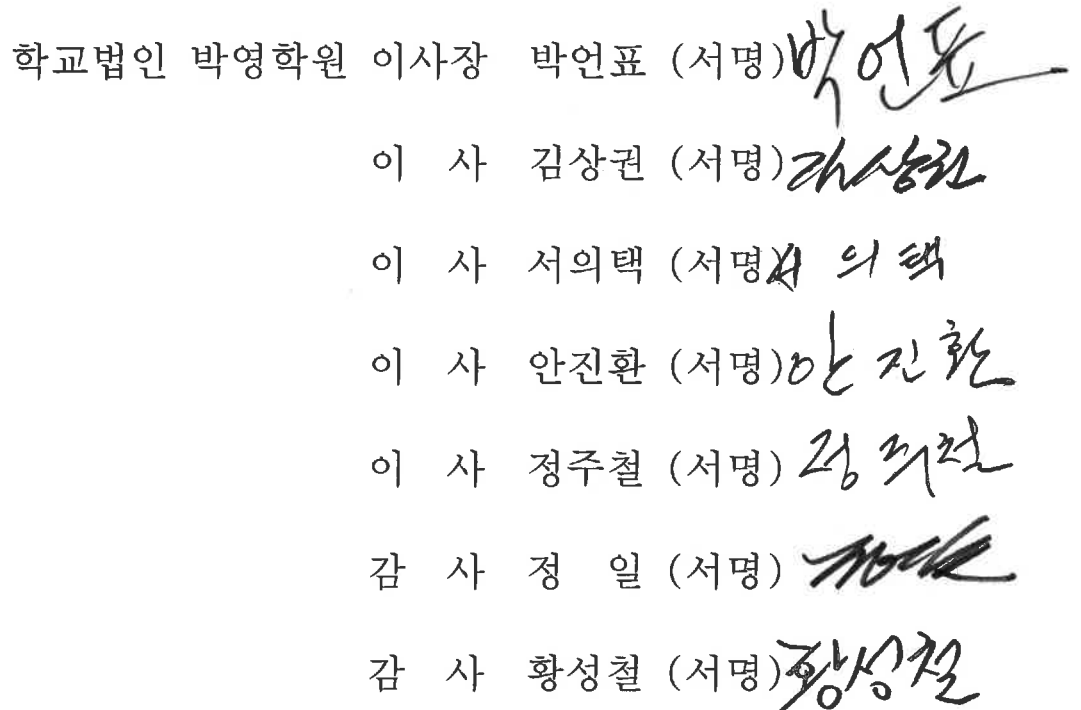 학교법인 박영학원 이사장 박언표 (서명) 박언표
이 사 김상권 (서명) 김상권
이 사 서의택 (서명) 서의택
이 사 안진환 (서명) 안진환
이 사 정주철 (서명) 정주철
감 사 정 일 (서명)
감 사 황성철 (서명) 황성철